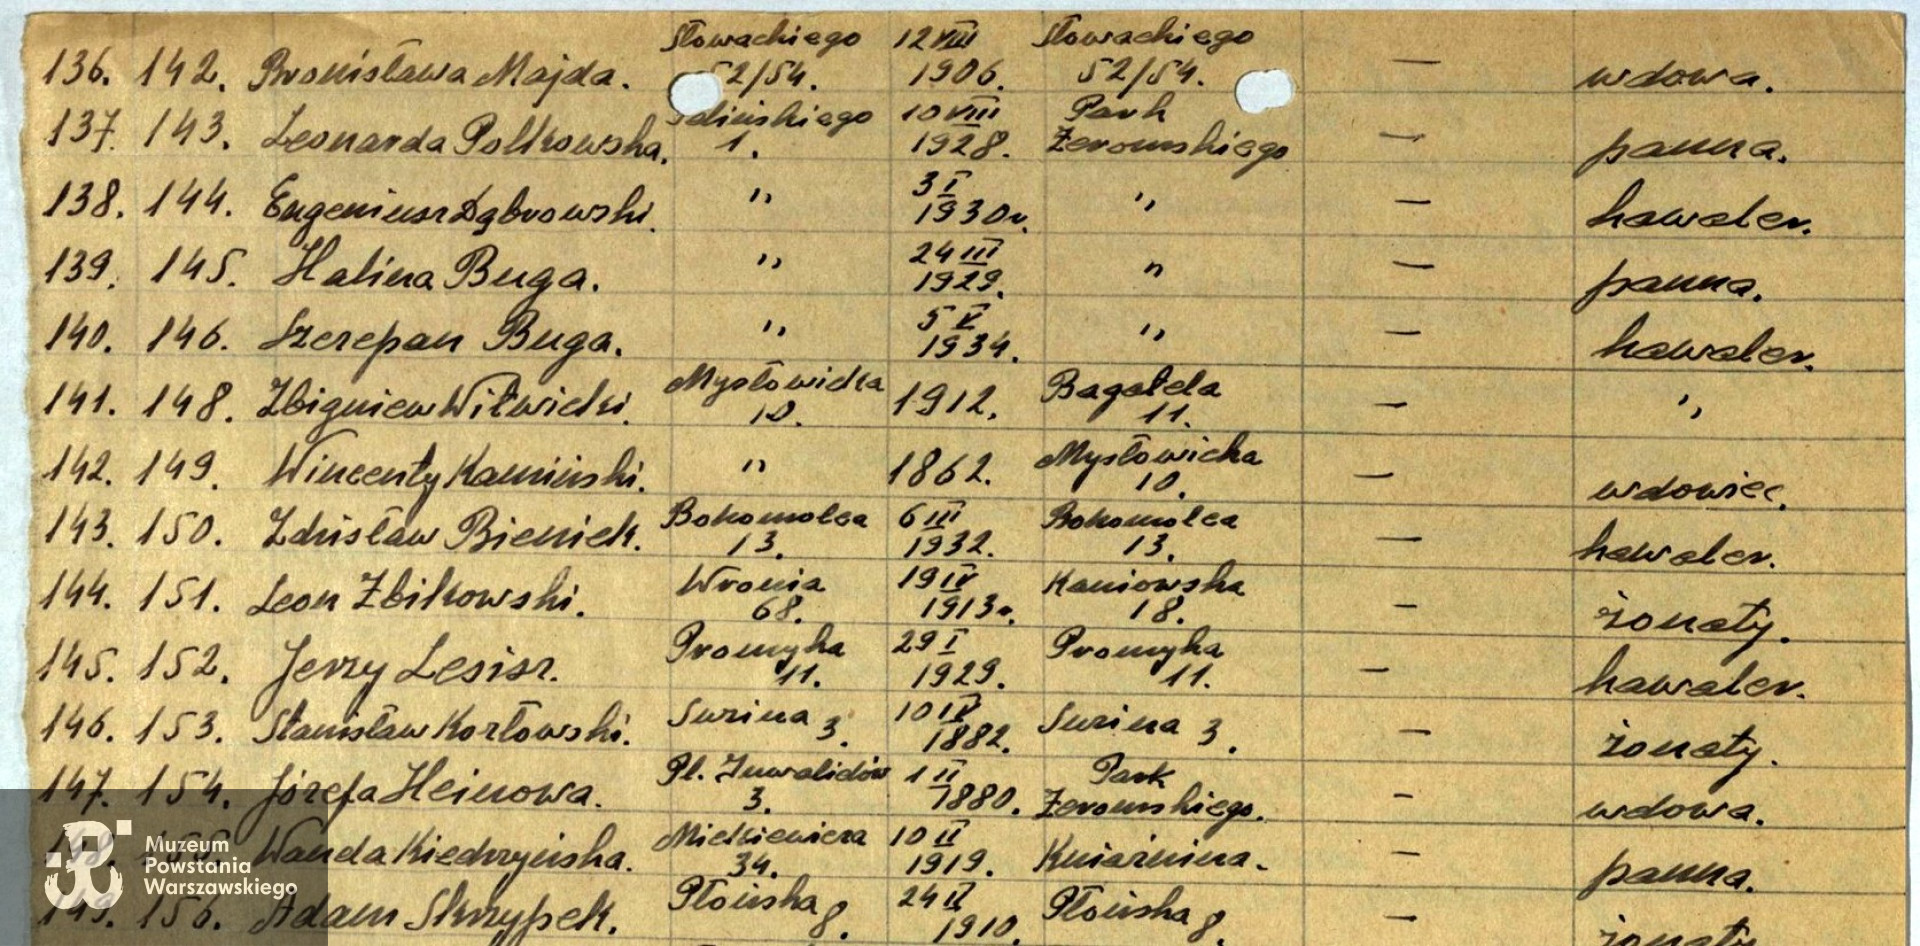 136. 142. Bronisława Majda. Słowackiego 52/54. 12 VIII 1906. Słowackiego 52/54. — wdowa.
137. 143. Leonarda Polkowska. 1. 10 VIII 1928. Park Żeromskiego — panna.
138. 144. Eugeniusz Dąbrowski. " 3 I 1930 r. " — kawaler.
139. 145. Halina Buga. " 24 III 1929. " — panna.
140. 146. Szczepan Buga. " 5 V 1934. " — kawaler.
141. 148. Zbigniew Witwicki. Mysłowicka 10. 1912. Bagatela 11. — "
142. 149. Wincenty Kamiński. " 1862. Mysłowicka 10. — wdowiec.
143. 150. Zdzisław Bieniek. Bohomolca 13. 6 III 1932. Bohomolca 13. — kawaler.
144. 151. Leon Zbikowski. Wronia 68. 19 IV 1913 r. Kaniowska 18. — żonaty.
145. 152. Jerzy Lesisz. Promyka 11. 29 I 1929. Promyka 11. — kawaler.
146. 153. Stanisław Kozłowski. Suzina 3. 10 IV 1882. Suzina 3. — żonaty.
147. 154. Józefa Heinowa. Pl. Inwalidów 3. 1 II 1880. Park Żeromskiego. — wdowa.
148. 155. Wanda Kiedrzyńska. Mickiewicza 34. 10 II 1919. Kniaźnina. — panna.
149. 156. Adam Skrzypek. Płońska 8. 24 II 1910. Płońska 8. — żonaty
Muzeum
Powstania
Warszawskiego